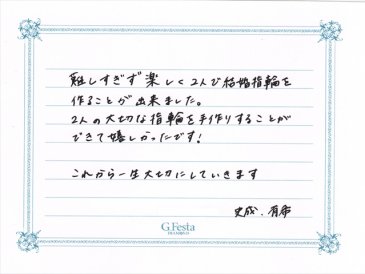 難しすぎず楽しく2人で結婚指輪を
作ることが出来ました。
2人の大切な指輪を手作りすることが
できて嬉しかったです!
これから一生大切にしていきます
史成・有希
G.Festa